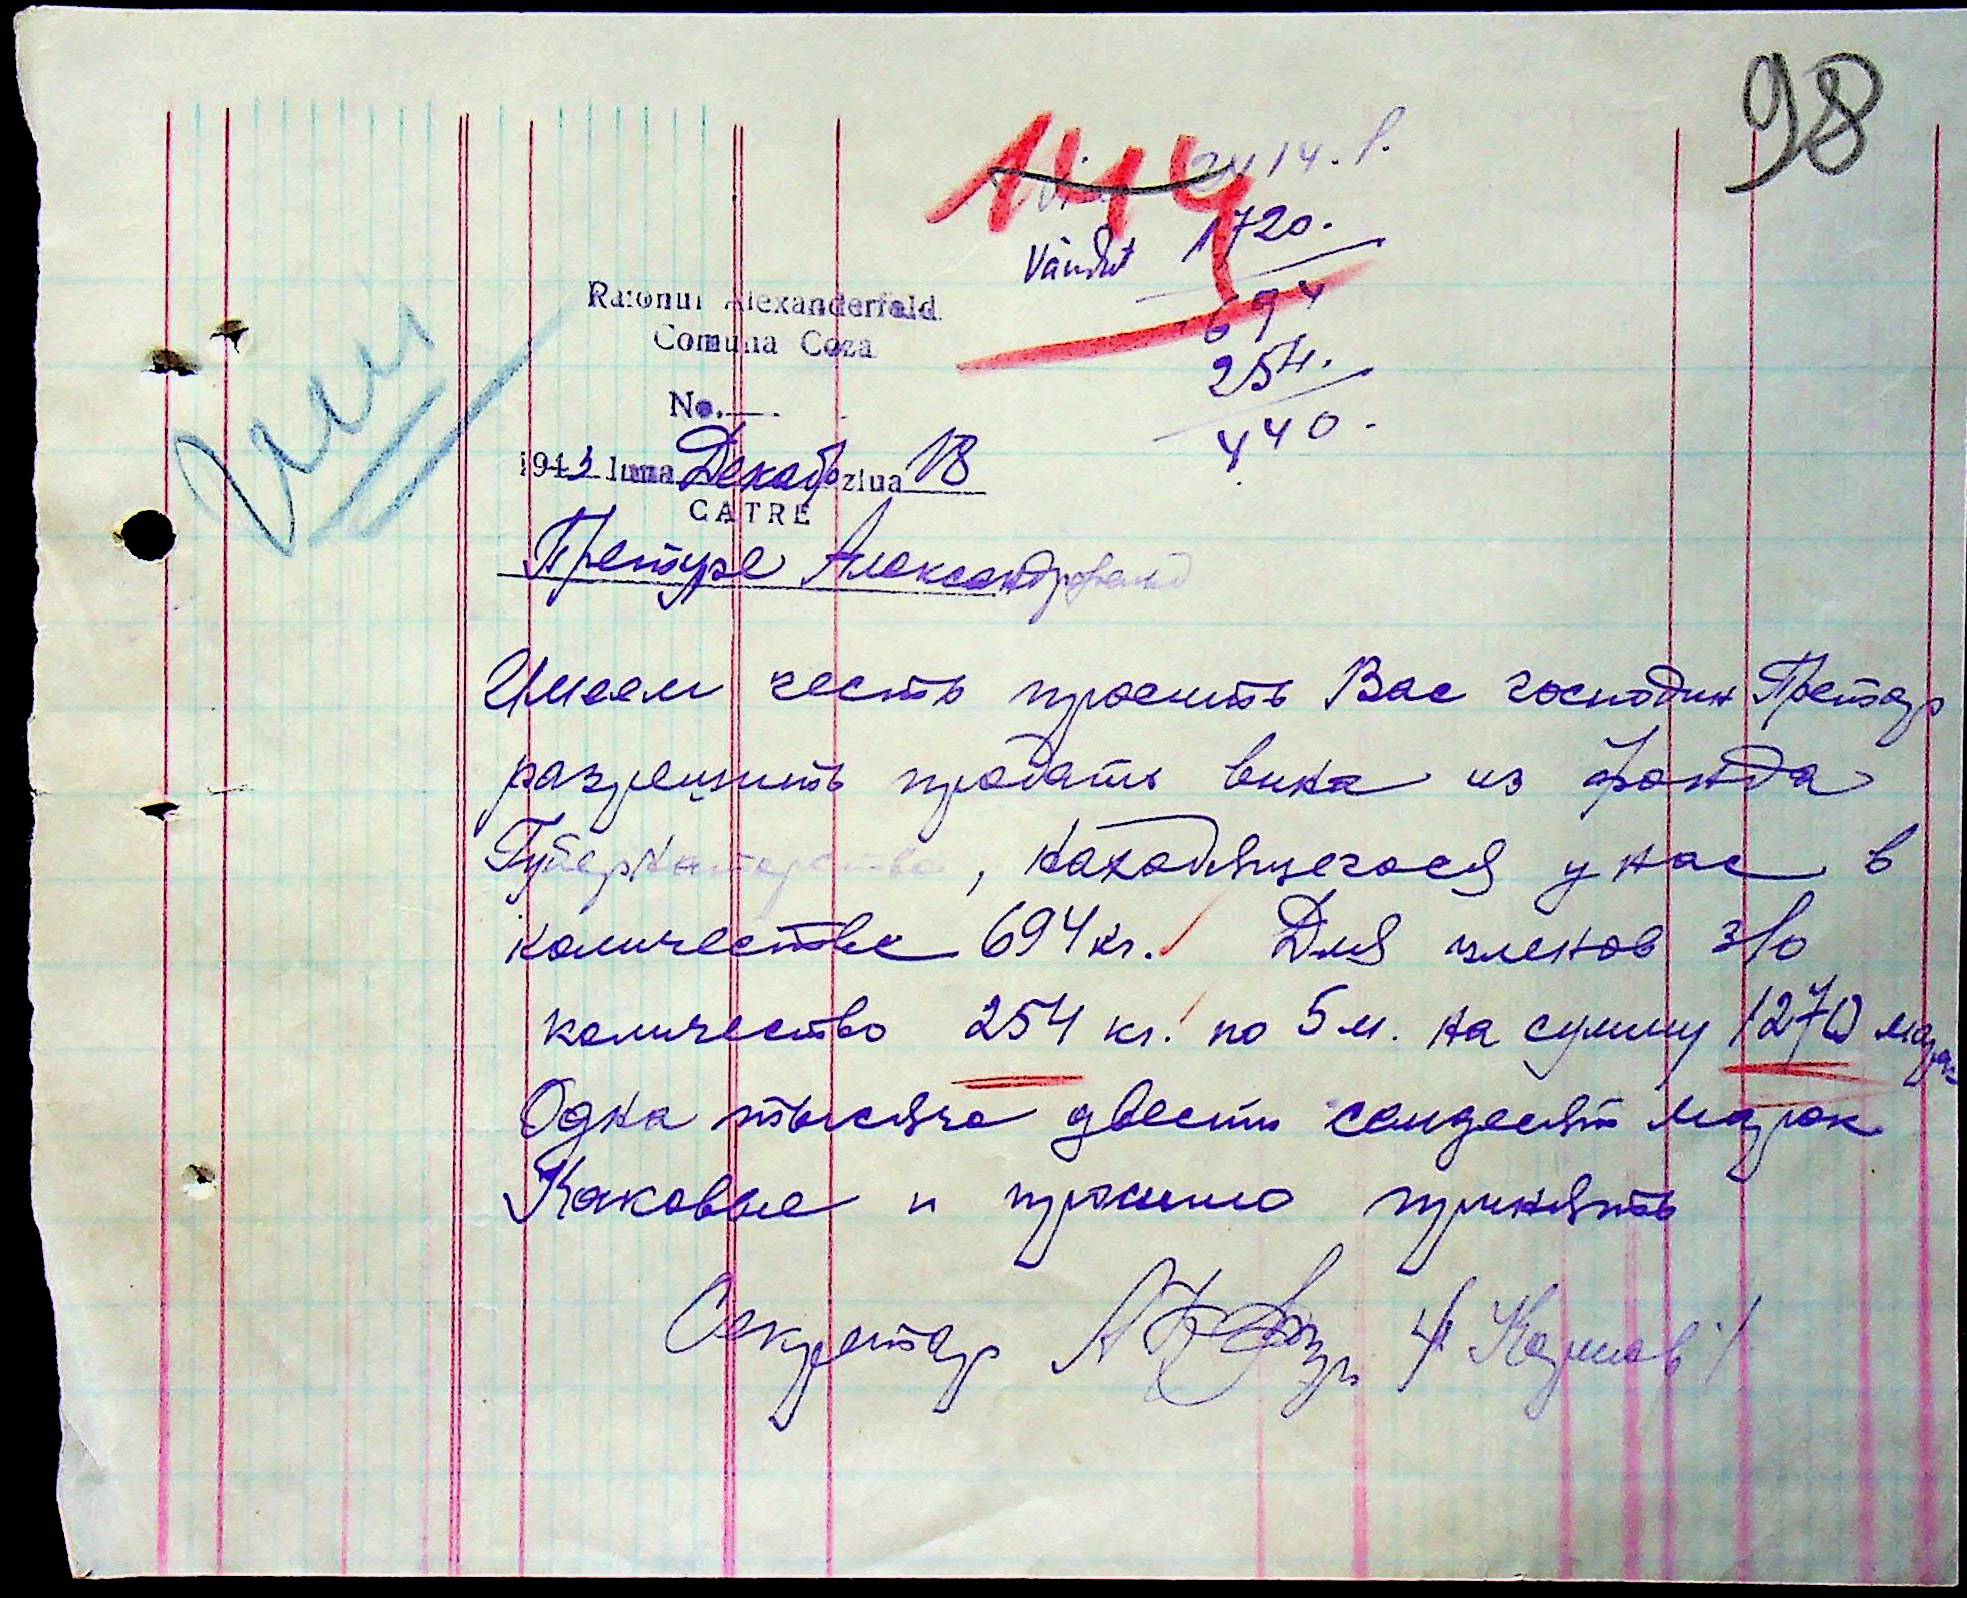 98
114
2414.
Vândut 1720.
694
254.
440.
Raionul Alexanderfeld
Comuna Coza
No.
1943 luna Декабр ziua 18
CATRE
Претуре Александрфельд
Имеем честь просить Вас господин Претор
разрешить продать вина из фонда
Губернаторства, находящегося у нас в
количестве 694 кг. Для членов з/о
количество 254 кг. по 5 м. на сумму 1270 марок
Одна тысяча двести семдесят марок
Каковые и просимо принять
Секретар